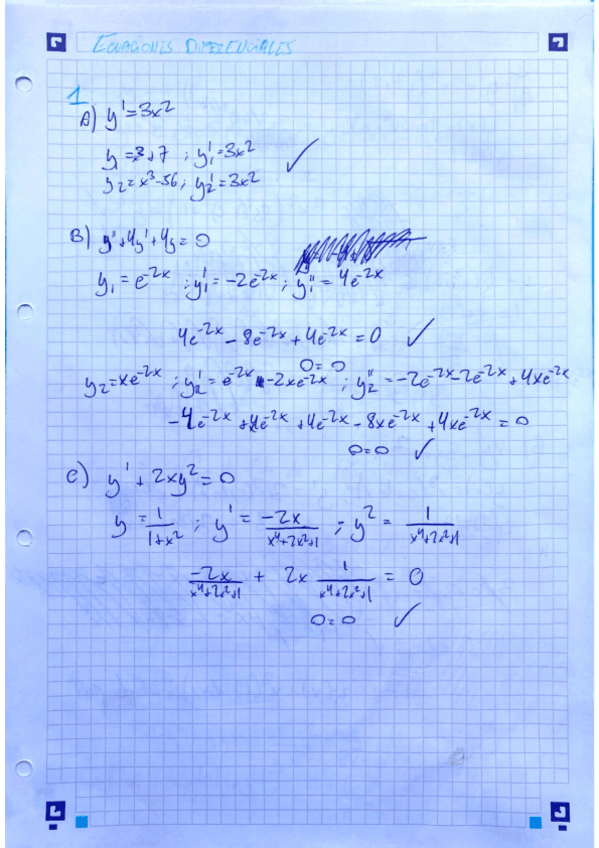 ECUACIONES DIFERENCIALES
1
A) y' = 3x²
y₁ = x³+7 ; y₁' = 3x²
y₂ = x³-56 ; y₂' = 3x² ✓
B) y'' + 4y' + 4y = 0
y₁ = e^-2x ; y₁' = -2e^-2x ; y₁'' = 4e^-2x
4e^-2x - 8e^-2x + 4e^-2x = 0 ✓
0 = 0
y₂ = xe^-2x ; y₂' = e^-2x - 2xe^-2x ; y₂'' = -2e^-2x - 2e^-2x + 4xe^-2x
-4e^-2x + 4xe^-2x + 4e^-2x - 8xe^-2x + 4xe^-2x = 0
0=0 ✓
C) y' + 2xy² = 0
y = 1/(1+x²) ; y' = -2x/(x⁴+2x²+1) ; y² = 1/(x⁴+2x²+1)
-2x/(x⁴+2x²+1) + 2x 1/(x⁴+2x²+1) = 0
0=0 ✓